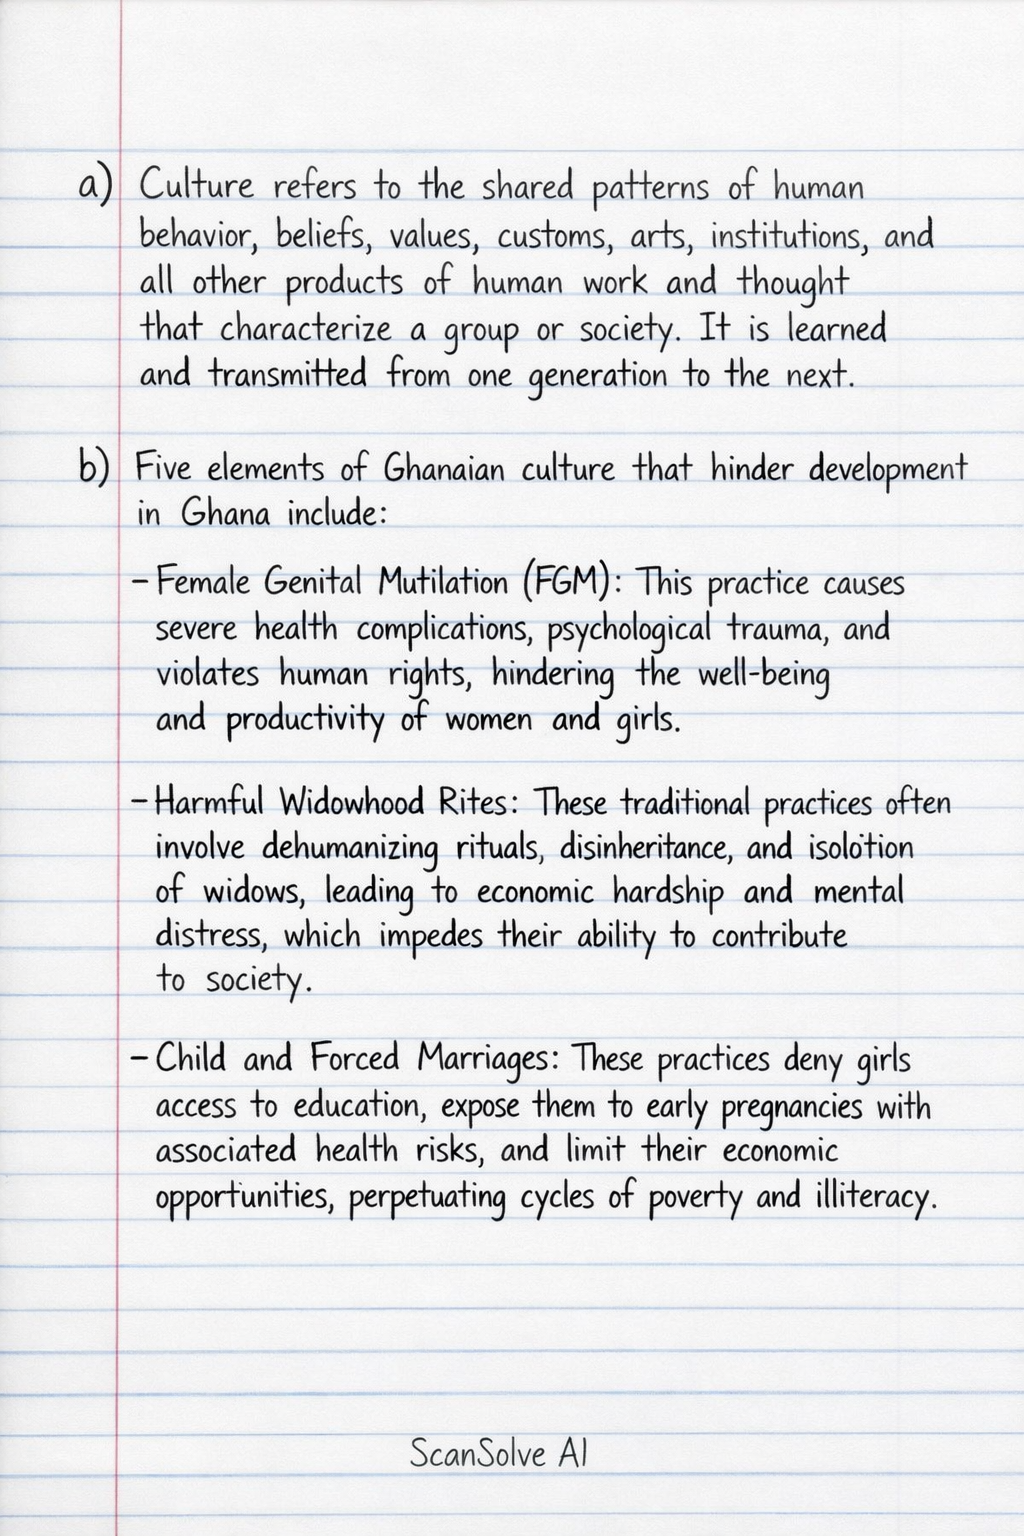 a) Culture refers to the shared patterns of human
behavior, beliefs, values, customs, arts, institutions, and
all other products of human work and thought
that characterize a group or society. It is learned
and transmitted from one generation to the next.
b) Five elements of Ghanaian culture that hinder development
in Ghana include:
– Female Genital Mutilation (FGM): This practice causes
severe health complications, psychological trauma, and
violates human rights, hindering the well-being
and productivity of women and girls.
– Harmful Widowhood Rites: These traditional practices often
involve dehumanizing rituals, disinheritance, and isolotion
of widows, leading to economic hardship and mental
distress, which impedes their ability to contribute
to society.
– Child and Forced Marriages: These practices deny girls
access to education, expose them to early pregnancies with
associated health risks, and limit their economic
opportunities, perpetuating cycles of poverty and illiteracy.
ScanSolve AI